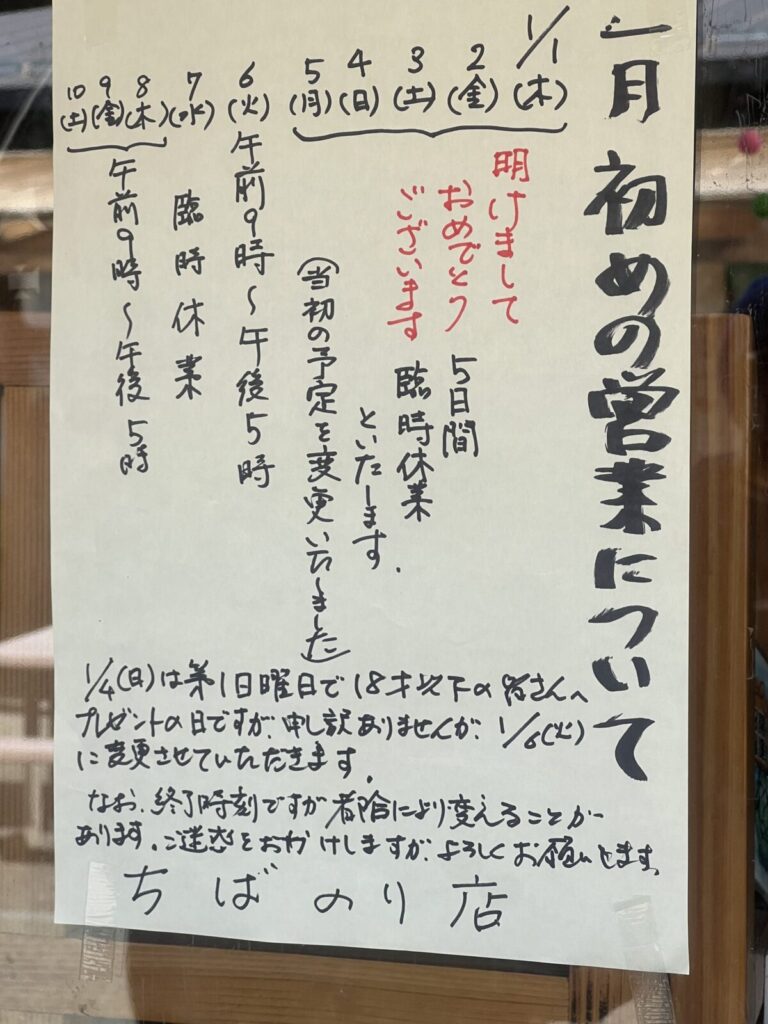 一月初めの営業について
1/1(木)
2(金)
3(土)
4(日)
5(月)
明けまして
おめでとう
ございます
5日間
臨時休業
といたします。
(当初の予定を変更いたしました)
6(火)午前9時〜午後5時
7(水)臨時休業
8(木)
9(金)
10(土)
午前9時〜午後5時
1/4(日)は第1日曜日で18才以下の皆さんへ
プレゼントの日ですが、申し訳ありませんが、1/6(火)
に変更させていただきます。
なお、終了時刻ですが都合により変えることが
あります。ご迷惑をおかけしますが、よろしくお願いします。
ちばのり店